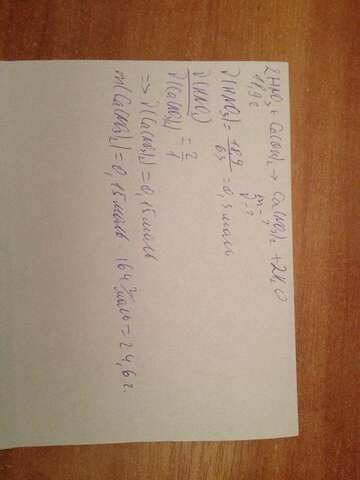 2HNO₃ + Ca(OH)₂ → Ca(NO₃)₂ + 2H₂O
18,9 г m = ?
ν - ?
ν(HNO₃) = 18,9 / 63 = 0,3 моль
ν(HNO₃) / ν(Ca(NO₃)₂) = 2 / 1
=> ν(Ca(NO₃)₂) = 0,15 моль
m(Ca(NO₃)₂) = 0,15 моль · 164 г/моль = 24,6 г.